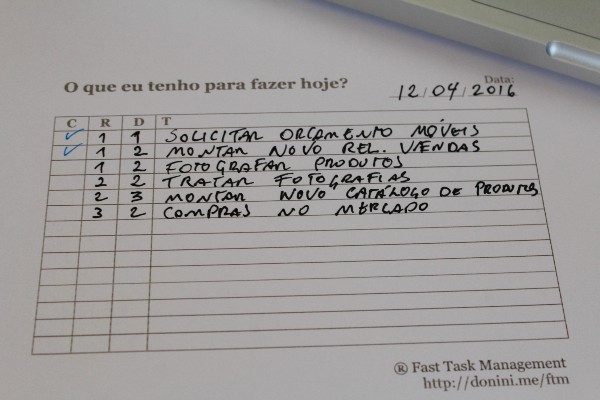 O que eu tenho para fazer hoje?
Data:
12/04/2016
C R D T
✓ 1 1 SOLICITAR ORÇAMENTO MÓVEIS
✓ 1 2 MONTAR NOVO REL. VENDAS
1 2 FOTOGRAFAR PRODUTOS
2 2 TRATAR FOTOGRAFIAS
2 3 MONTAR NOVO CATÁLOGO DE PRODUTOS
3 2 COMPRAS NO MERCADO
® Fast Task Management
http://donini.me/ftm